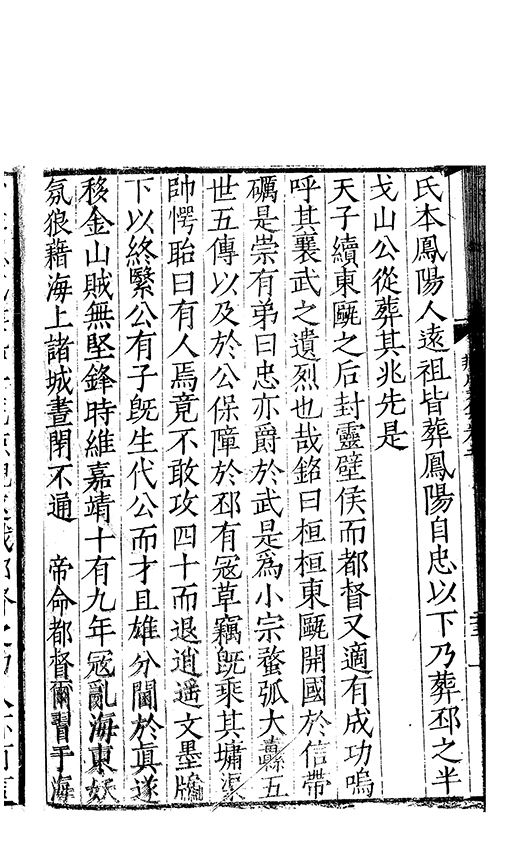 氏本鳳陽人遠祖皆葬鳳陽自忠以下乃葬邳之半
戈山公從葬其兆先是
天子續東甌之后封靈璧侯而都督又適有成功嗚
呼其襄武之遺烈也哉銘曰桓桓東甌開國於信帶
礪是崇有弟曰忠亦爵於武是爲小宗蝥弧大纛五
世五傳以及於公保障於邳有冦草竊旣乘其墉渠
帥愕眙曰有人焉竟不敢攻四十而退逍遥文墨牗
下以終繄公有子旣生代公而才且雄分閫於眞遂
移金山賊無堅鋒時維嘉靖十有九年冦亂海東妖
氛狼藉海上諸城晝閉不通 帝命都督爾習于海